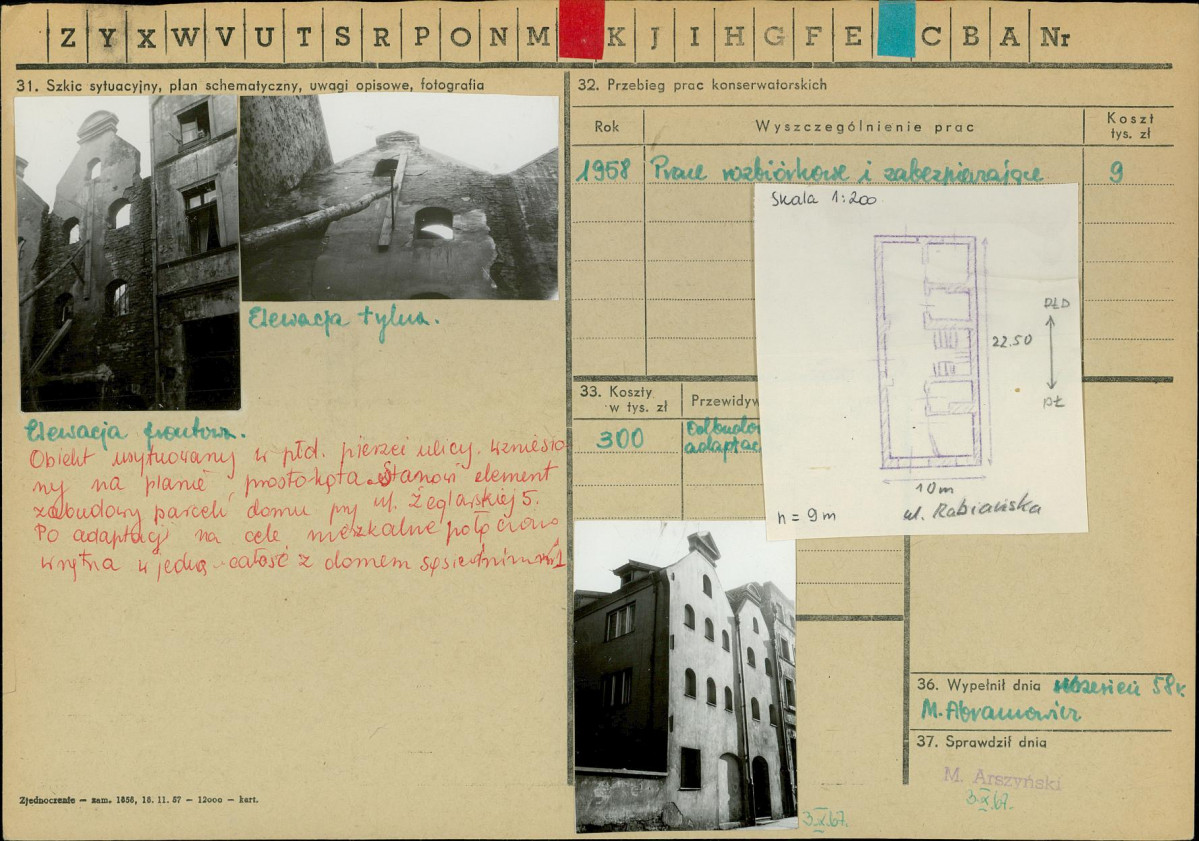 Z Y X W V U T S R P O N M K J I H G F E C B A Nr
31. Szkic sytuacyjny, plan schematyczny, uwagi opisowe, fotografia
Elewacja tylna.
Elewacja frontowa.
Obiekt usytuowany w płd. pierzei ulicy. Wzniesio-
ny na planie prostokąta. Stanowi element
zabudowy parceli domu przy ul. Żeglarskiej 5.
Po adaptacji na cele mieszkalne połączono
wnętrza w jedną całość z domem sąsiednim nr 1
Zjednoczenie — zam. 1856, 18. 11. 57 — 12000 — kart.
32. Przebieg prac konserwatorskich
Rok
Wyszczególnienie prac
Koszt
tys. zł
1958 Prace rozbiórkowe i zabezpieczające 9
Skala 1:200
22.50
PŁD
PŁ
10 m
h = 9 m
ul. Rabiańska
33. Koszty
w tys. zł
Przewidyw
300
Odbudow
adaptac
3.X.67.
36. Wypełnił dnia wrzesień 58 r.
M. Abramowicz
37. Sprawdził dnia
M. Arszyński
3.X.67.